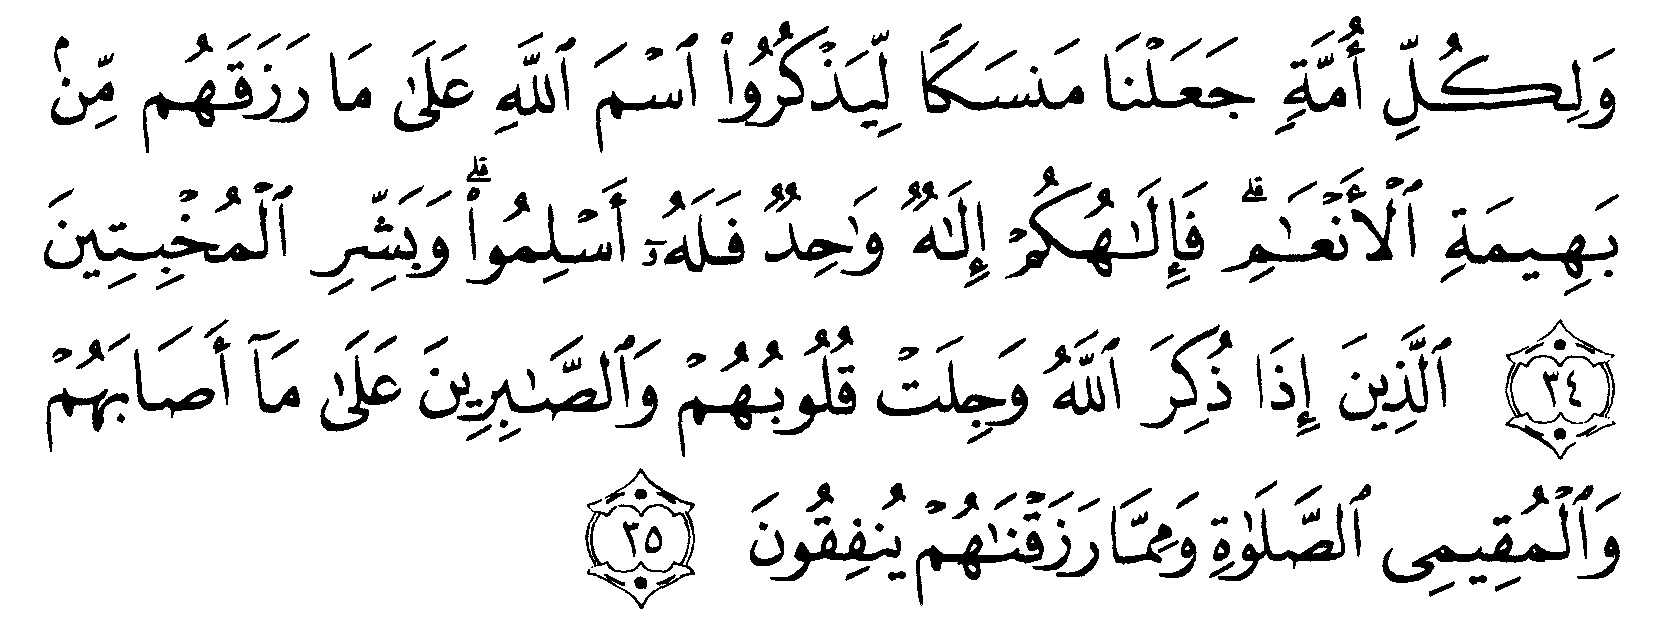 وَلِكُلِّ أُمَّةٍ جَعَلْنَا مَنسَكًا لِّيَذْكُرُوا۟ ٱسْمَ ٱللَّهِ عَلَىٰ مَا رَزَقَهُم مِّنۢ
بَهِيمَةِ ٱلْأَنْعَـٰمِ ۗ فَإِلَـٰهُكُمْ إِلَـٰهٌ وَٰحِدٌ فَلَهُۥٓ أَسْلِمُوا۟ ۗ وَبَشِّرِ ٱلْمُخْبِتِينَ
٣٤ ٱلَّذِينَ إِذَا ذُكِرَ ٱللَّهُ وَجِلَتْ قُلُوبُهُمْ وَٱلصَّـٰبِرِينَ عَلَىٰ مَآ أَصَابَهُمْ
وَٱلْمُقِيمِى ٱلصَّلَوٰةِ وَمِمَّا رَزَقْنَـٰهُمْ يُنفِقُونَ ٣٥